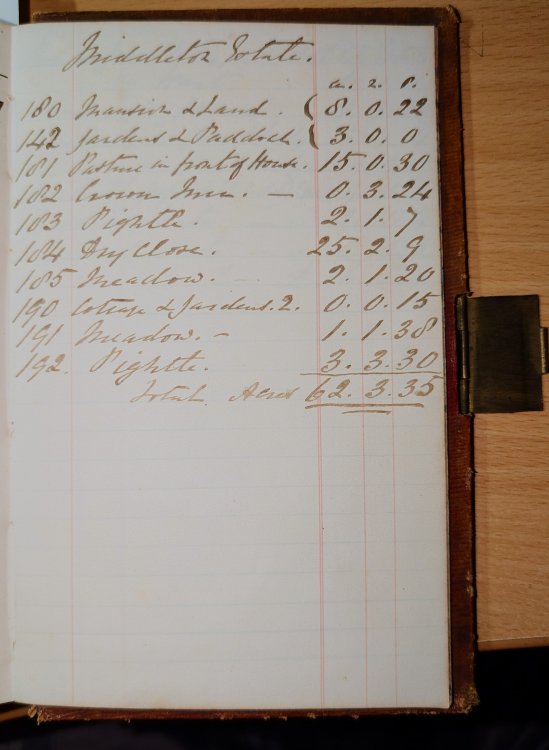 Middleton Estate.
a. r. p.
180 Mansion & Land. { 8. 0. 22
142 Gardens & Paddock. { 3. 0. 0
181 Pasture in front of House. 15. 0. 30
182 Crown Inn. — 0. 3. 24
183 Pightle. 2. 1. 7
184 Dry Close. 25. 2. 9
185 Meadow. 2. 1. 20
190 Cottage & Gardens. 2. 0. 0. 15
191 Meadow. - 1. 1. 38
192. Pightle. 3. 3. 30
Total Acres 62. 3. 35